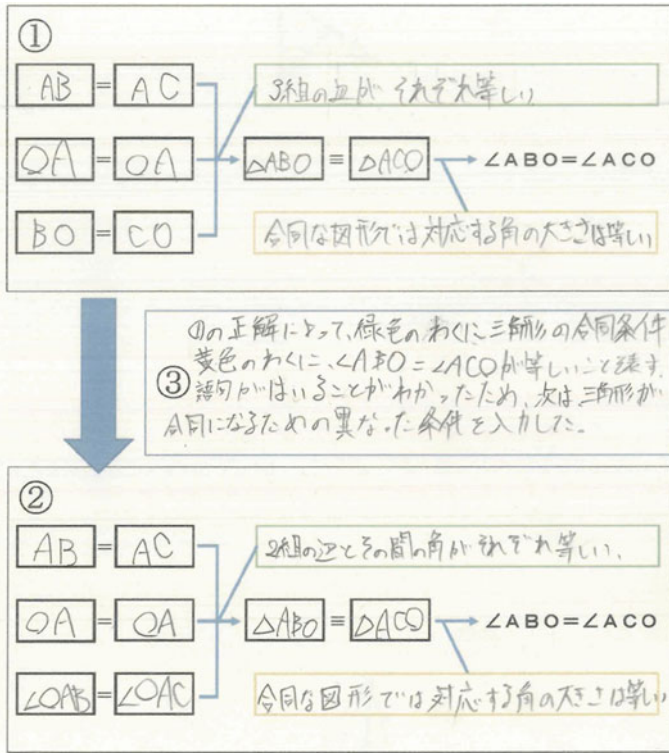 ①
AB = AC
3組の辺が それぞれ等しい
OA = OA △ABO ≡ △ACO ∠ABO=∠ACO
BO = CO
合同な図形では対応する角の大きさは等しい
①の正解によって、緑色のわくに三角形の合同条件
黄色のわくに、∠ABO=∠ACOが等しいこと表す、
③ 語句がはいることがわかったため、次は三角形が
合同になるための異なった条件を入力した。
②
AB = AC
2組の辺とその間の角がそれぞれ等しい、
OA = OA △ABO ≡ △ACO ∠ABO=∠ACO
∠OAB = ∠OAC
合同な図形では対応する角の大きさは等しい